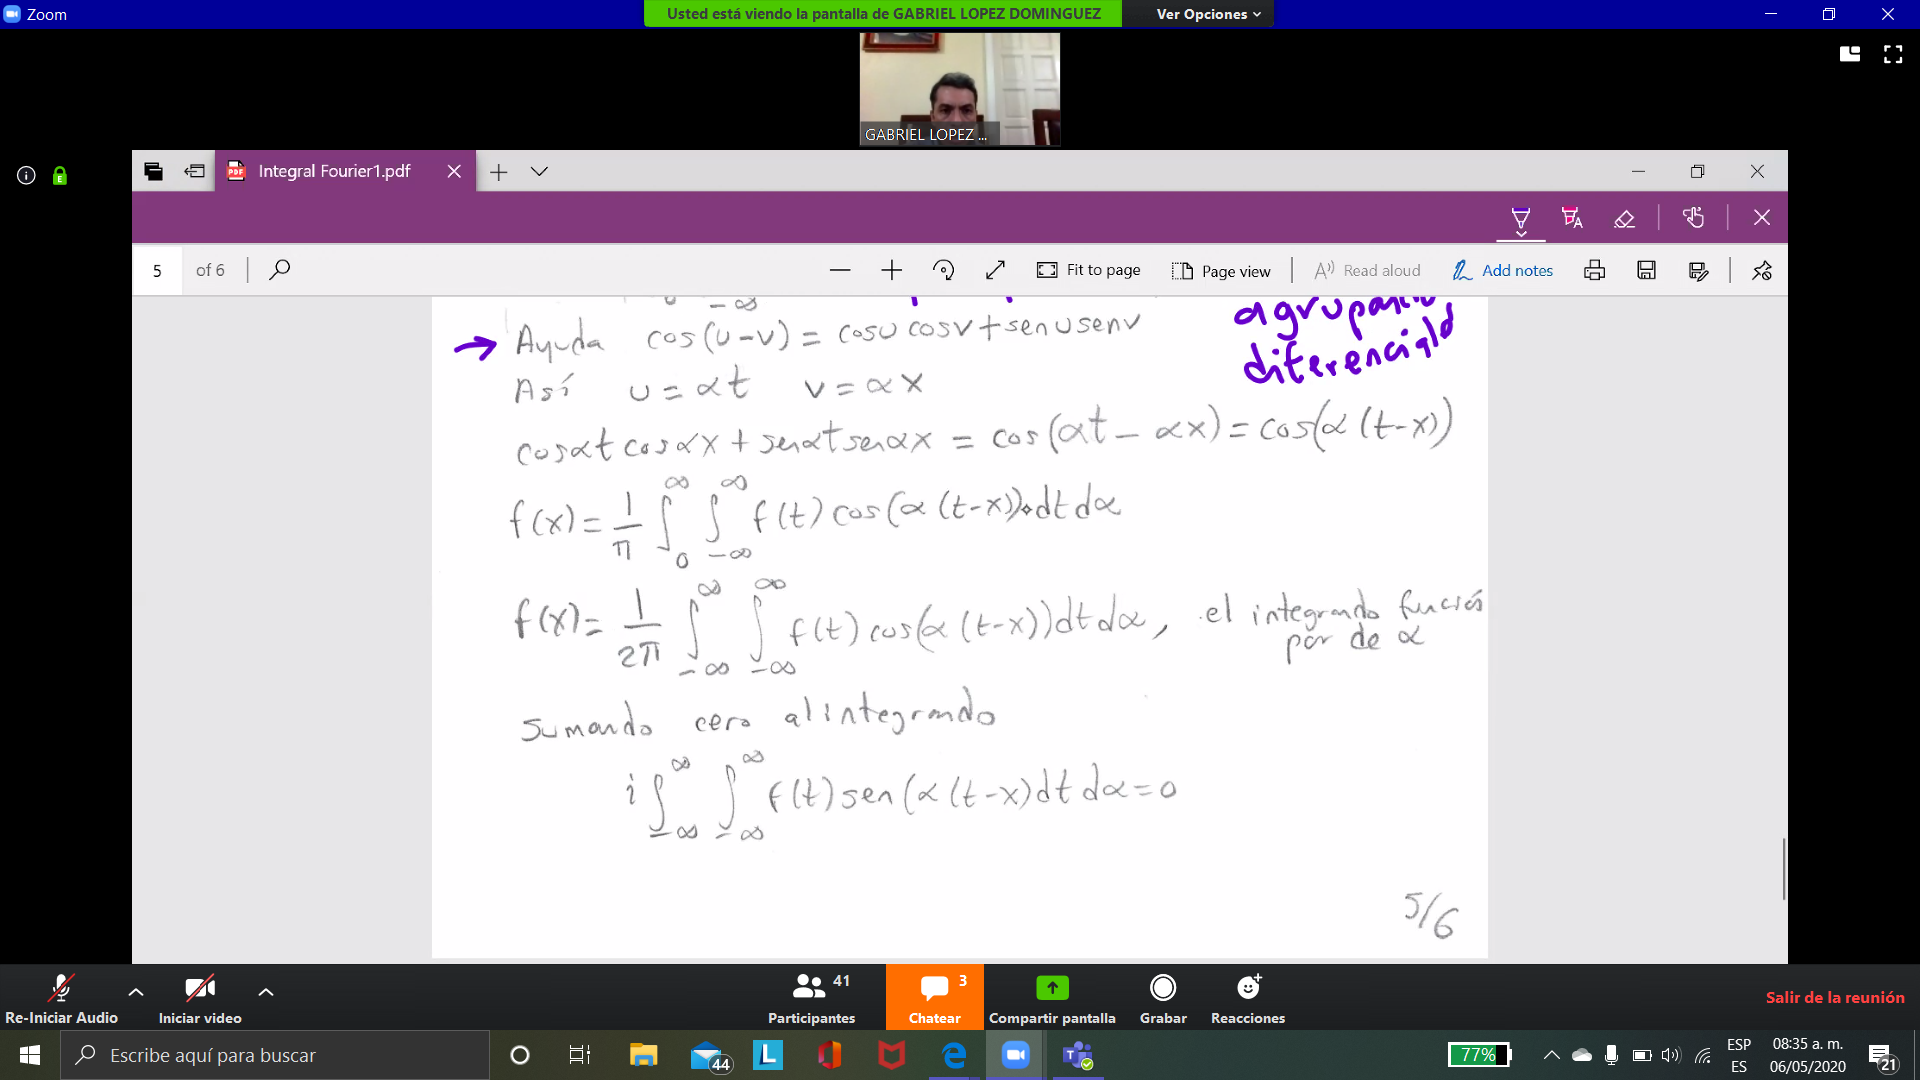 Zoom
Usted está viendo la pantalla de GABRIEL LOPEZ DOMINGUEZ
Ver Opciones
GABRIEL LOPEZ ...
Integral Fourier1.pdf
5 of 6
Fit to page
Page view
Read aloud
Add notes
-∞
agrupando
diferencial
Ayuda cos(u-v) = cosu cosv + senu senv
Así u = αt v = αx
cosαt cosαx + senαt senαx = cos(αt - αx) = cos(α(t-x))
f(x) = 1/π ∫_0^∞ ∫_{-∞}^∞ f(t) cos(α(t-x)) dt dα
f(x) = 1/2π ∫_{-∞}^∞ ∫_{-∞}^∞ f(t) cos(α(t-x)) dt dα, el integrando función
par de α
Sumando cero al integrando
i ∫_{-∞}^∞ ∫_{-∞}^∞ f(t) sen(α(t-x) dt dα = 0
5/6
Re-Iniciar Audio
Iniciar video
41
Participantes
3
Chatear
Compartir pantalla
Grabar
Reacciones
Salir de la reunión
Escribe aquí para buscar
44
L
77%
ESP
ES
08:35 a. m.
06/05/2020
21